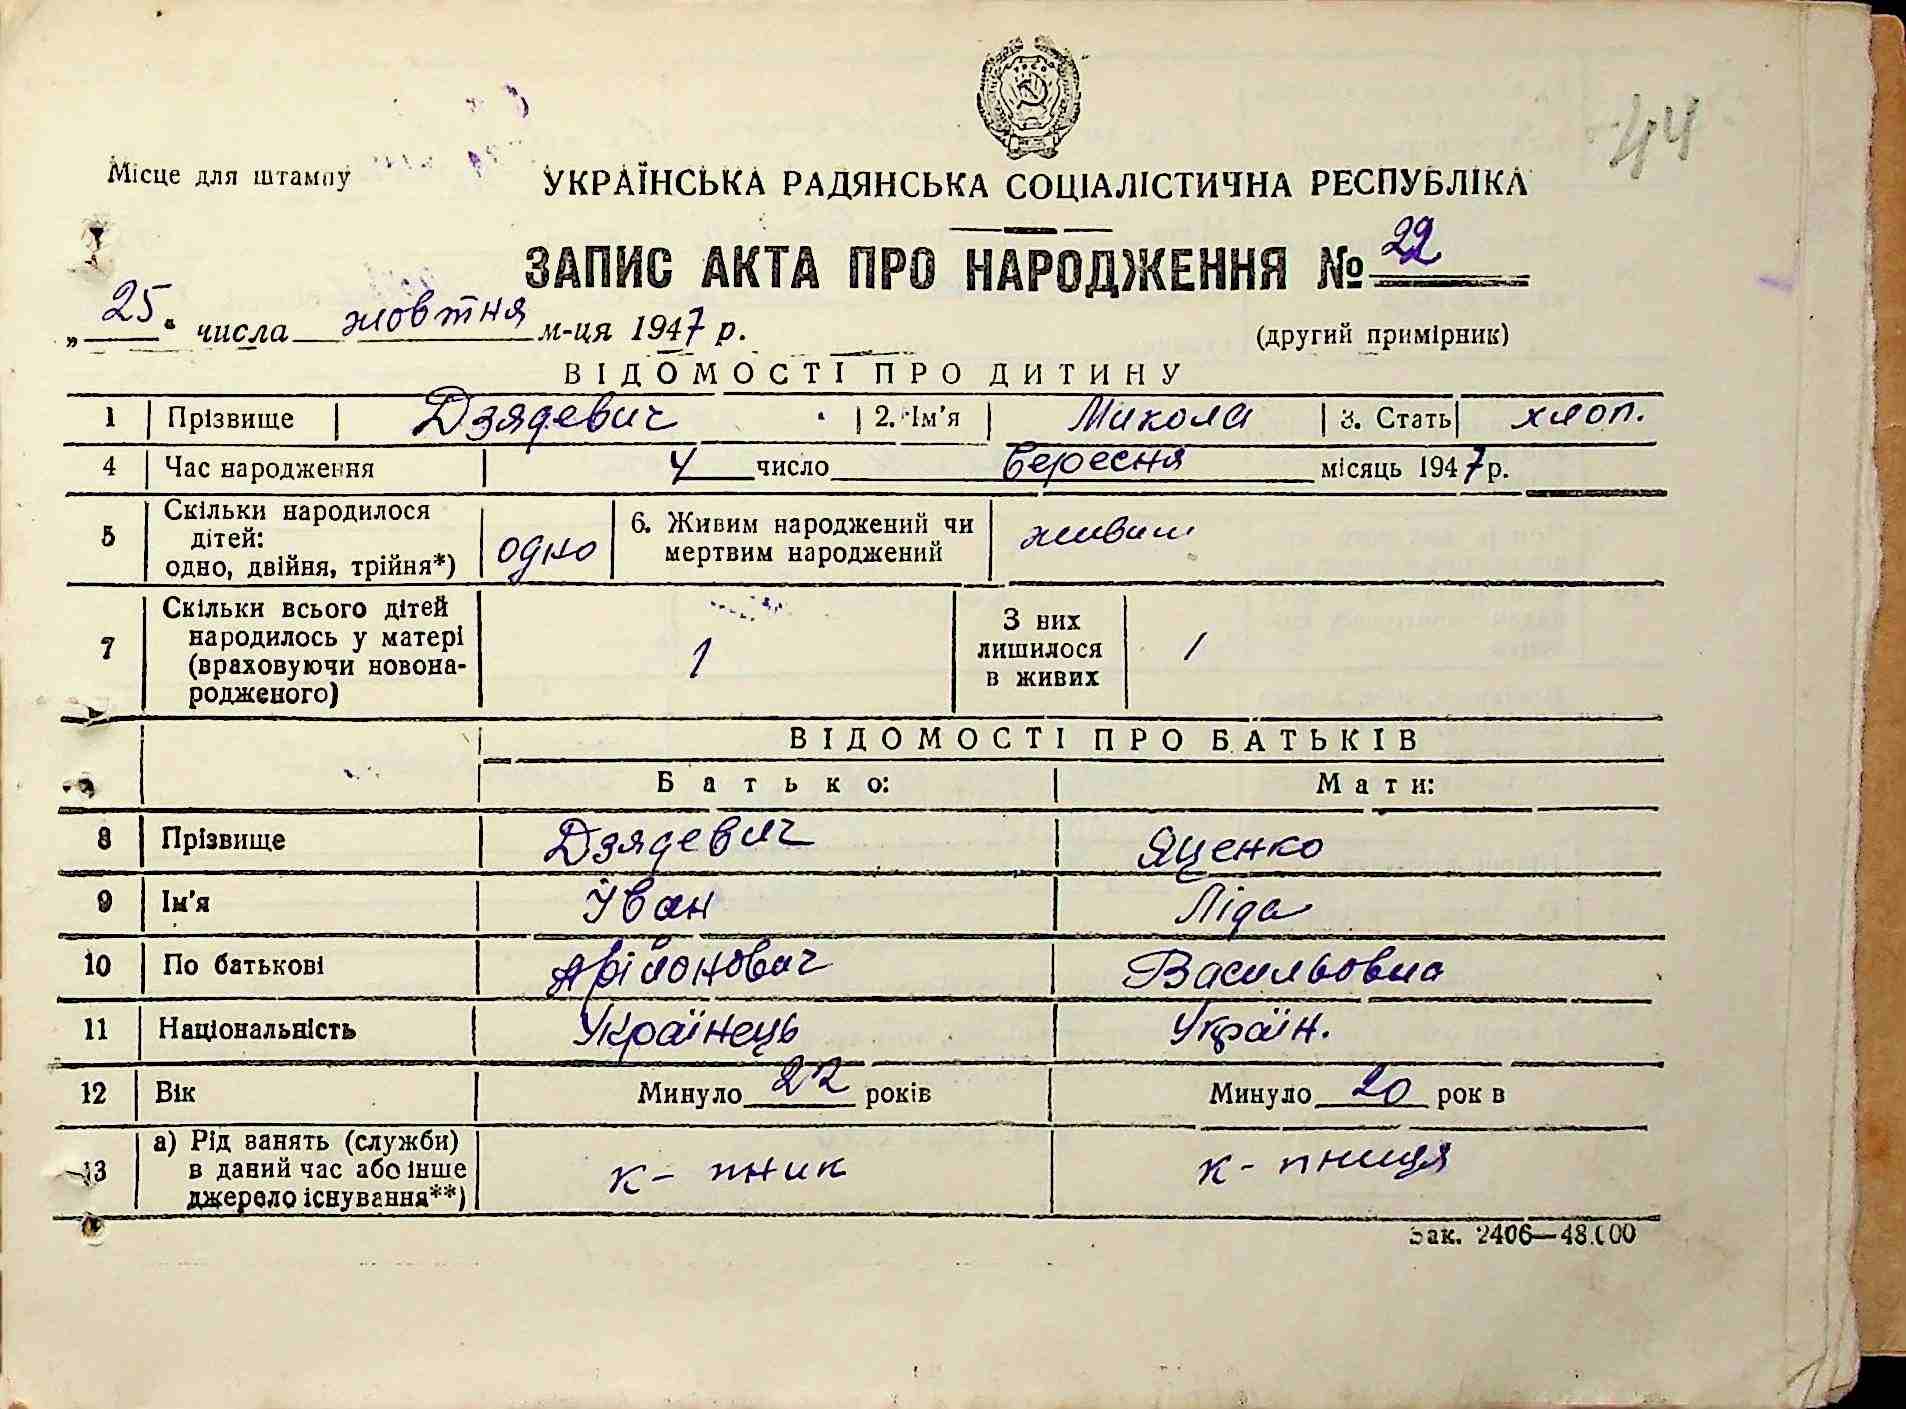 44
Місце для штампу
УКРАЇНСЬКА РАДЯНСЬКА СОЦІАЛІСТИЧНА РЕСПУБЛІКА
ЗАПИС АКТА ПРО НАРОДЖЕННЯ № 22
„25“ числа жовтня м-ця 1947 р.
(другий примірник)
ВІДОМОСТІ ПРО ДИТИНУ
1 Прізвище Дзядевич 2. Ім'я Микола 3. Стать хлоп.
4 Час народження 4 число вересня місяць 1947 р.
5 Скільки народилося дітей: одно, двійня, трійня*) одно 6. Живим народжений чи мертвим народжений живим
7 Скільки всього дітей народилось у матері (враховуючи новонародженого) 1 З них лишилося в живих 1
ВІДОМОСТІ ПРО БАТЬКІВ
Батько: Мати:
8 Прізвище Дзядевич Яценко
9 Ім'я Іван Ліда
10 По батькові Васильовна
11 Національність Українець Україн.
12 Вік Минуло 22 років Минуло 20 рок в
13 а) Рід занять (служби) в даний час або інше джерело існування**) к-пник к-пниця
Зак. 2406—48.000